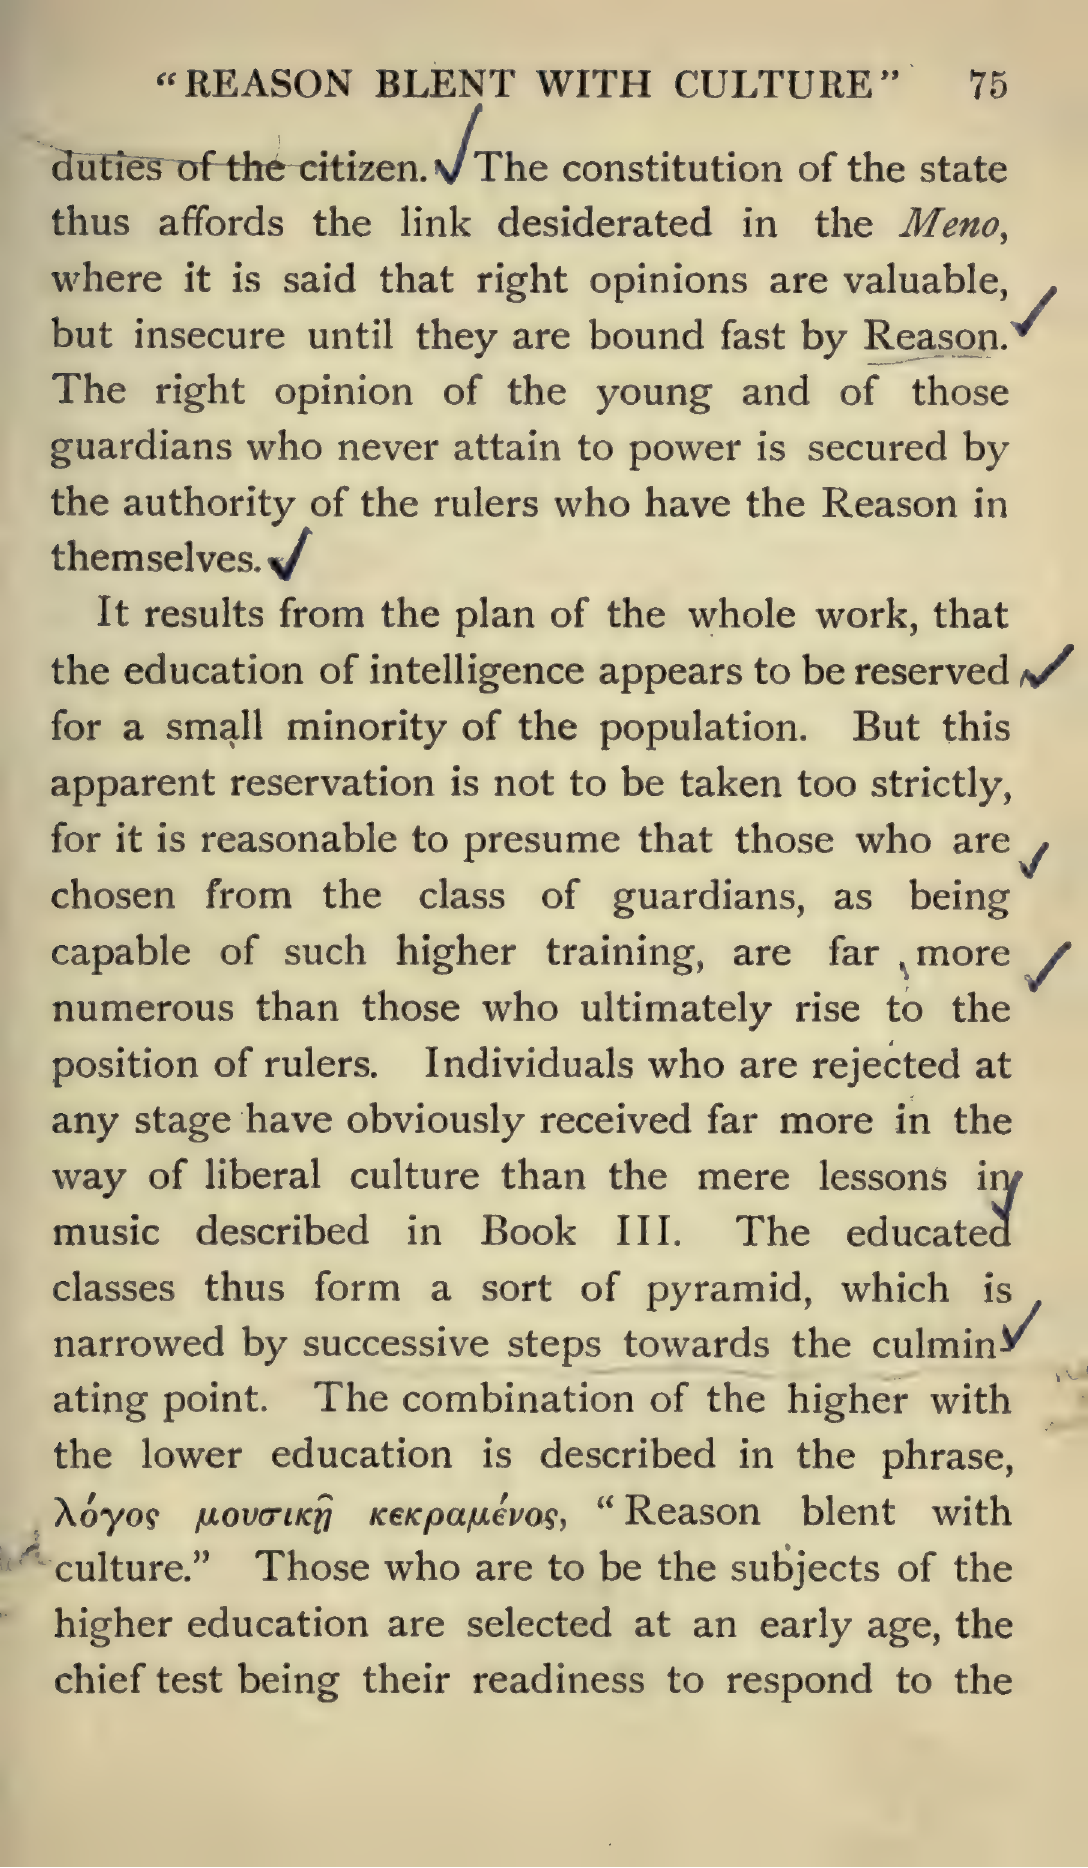 "REASON BLENT WITH CULTURE" 75
duties of the citizen. The constitution of the state
thus affords the link desiderated in the Meno,
where it is said that right opinions are valuable,
but insecure until they are bound fast by Reason.
The right opinion of the young and of those
guardians who never attain to power is secured by
the authority of the rulers who have the Reason in
themselves.
It results from the plan of the whole work, that
the education of intelligence appears to be reserved
for a small minority of the population. But this
apparent reservation is not to be taken too strictly,
for it is reasonable to presume that those who are
chosen from the class of guardians, as being
capable of such higher training, are far more
numerous than those who ultimately rise to the
position of rulers. Individuals who are rejected at
any stage have obviously received far more in the
way of liberal culture than the mere lessons in
music described in Book III. The educated
classes thus form a sort of pyramid, which is
narrowed by successive steps towards the culmin-
ating point. The combination of the higher with
the lower education is described in the phrase,
λόγος μουσικῇ κεκραμένος, "Reason blent with
culture." Those who are to be the subjects of the
higher education are selected at an early age, the
chief test being their readiness to respond to the